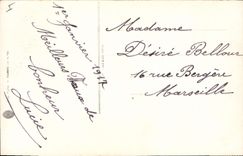 1er Janvier 1917
Meilleurs Vœux de
bonheur
Lucie
Madame
Désiré Bellour
16 rue Bergère
Marseille